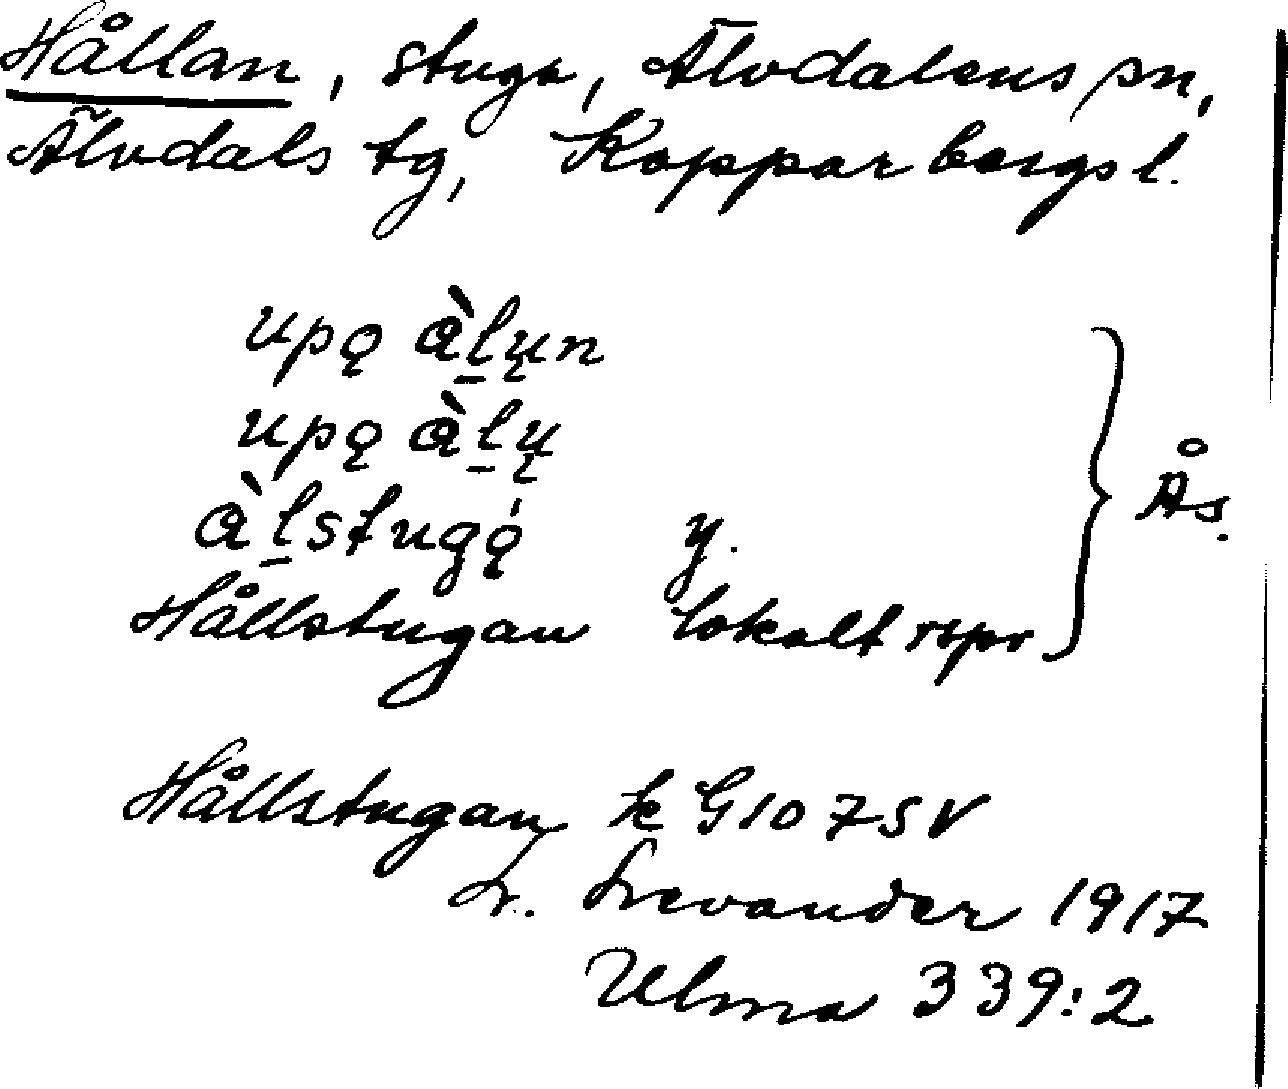 Hållan, stuga, Älvdalens sn,
Älvdals tg, Kopparbergs l.
upǫ àl̠ųn
upǫ àl̠ų
àl̠stugǫ́ y.
Hållstugan lokalt rspr } Ås.
Hållstugan k G10 7SV
L. Levander 1917
Ulma 339:2